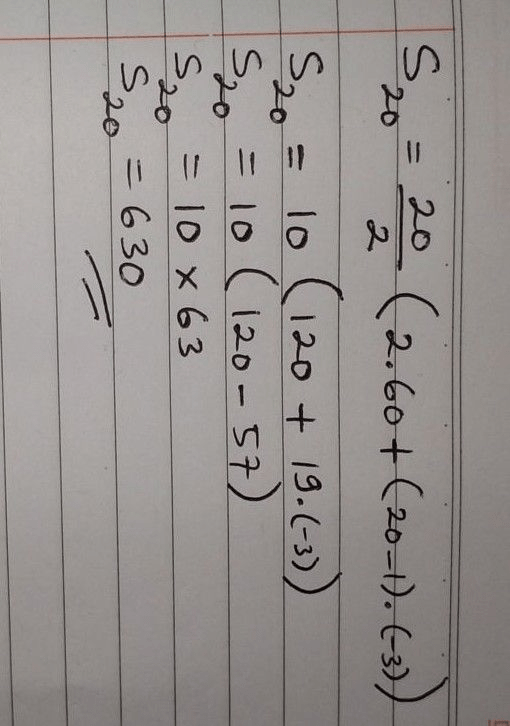 S₂₀ = 20/2 (2·60 + (20-1)·(-3))
S₂₀ = 10 (120 + 19·(-3))
S₂₀ = 10 (120 - 57)
S₂₀ = 10 × 63
S₂₀ = 630